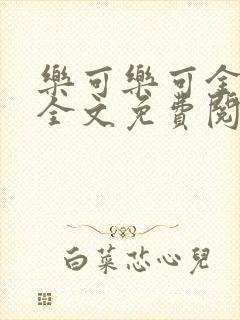 樂可樂可全
全文免費閱
白菜芯心兒